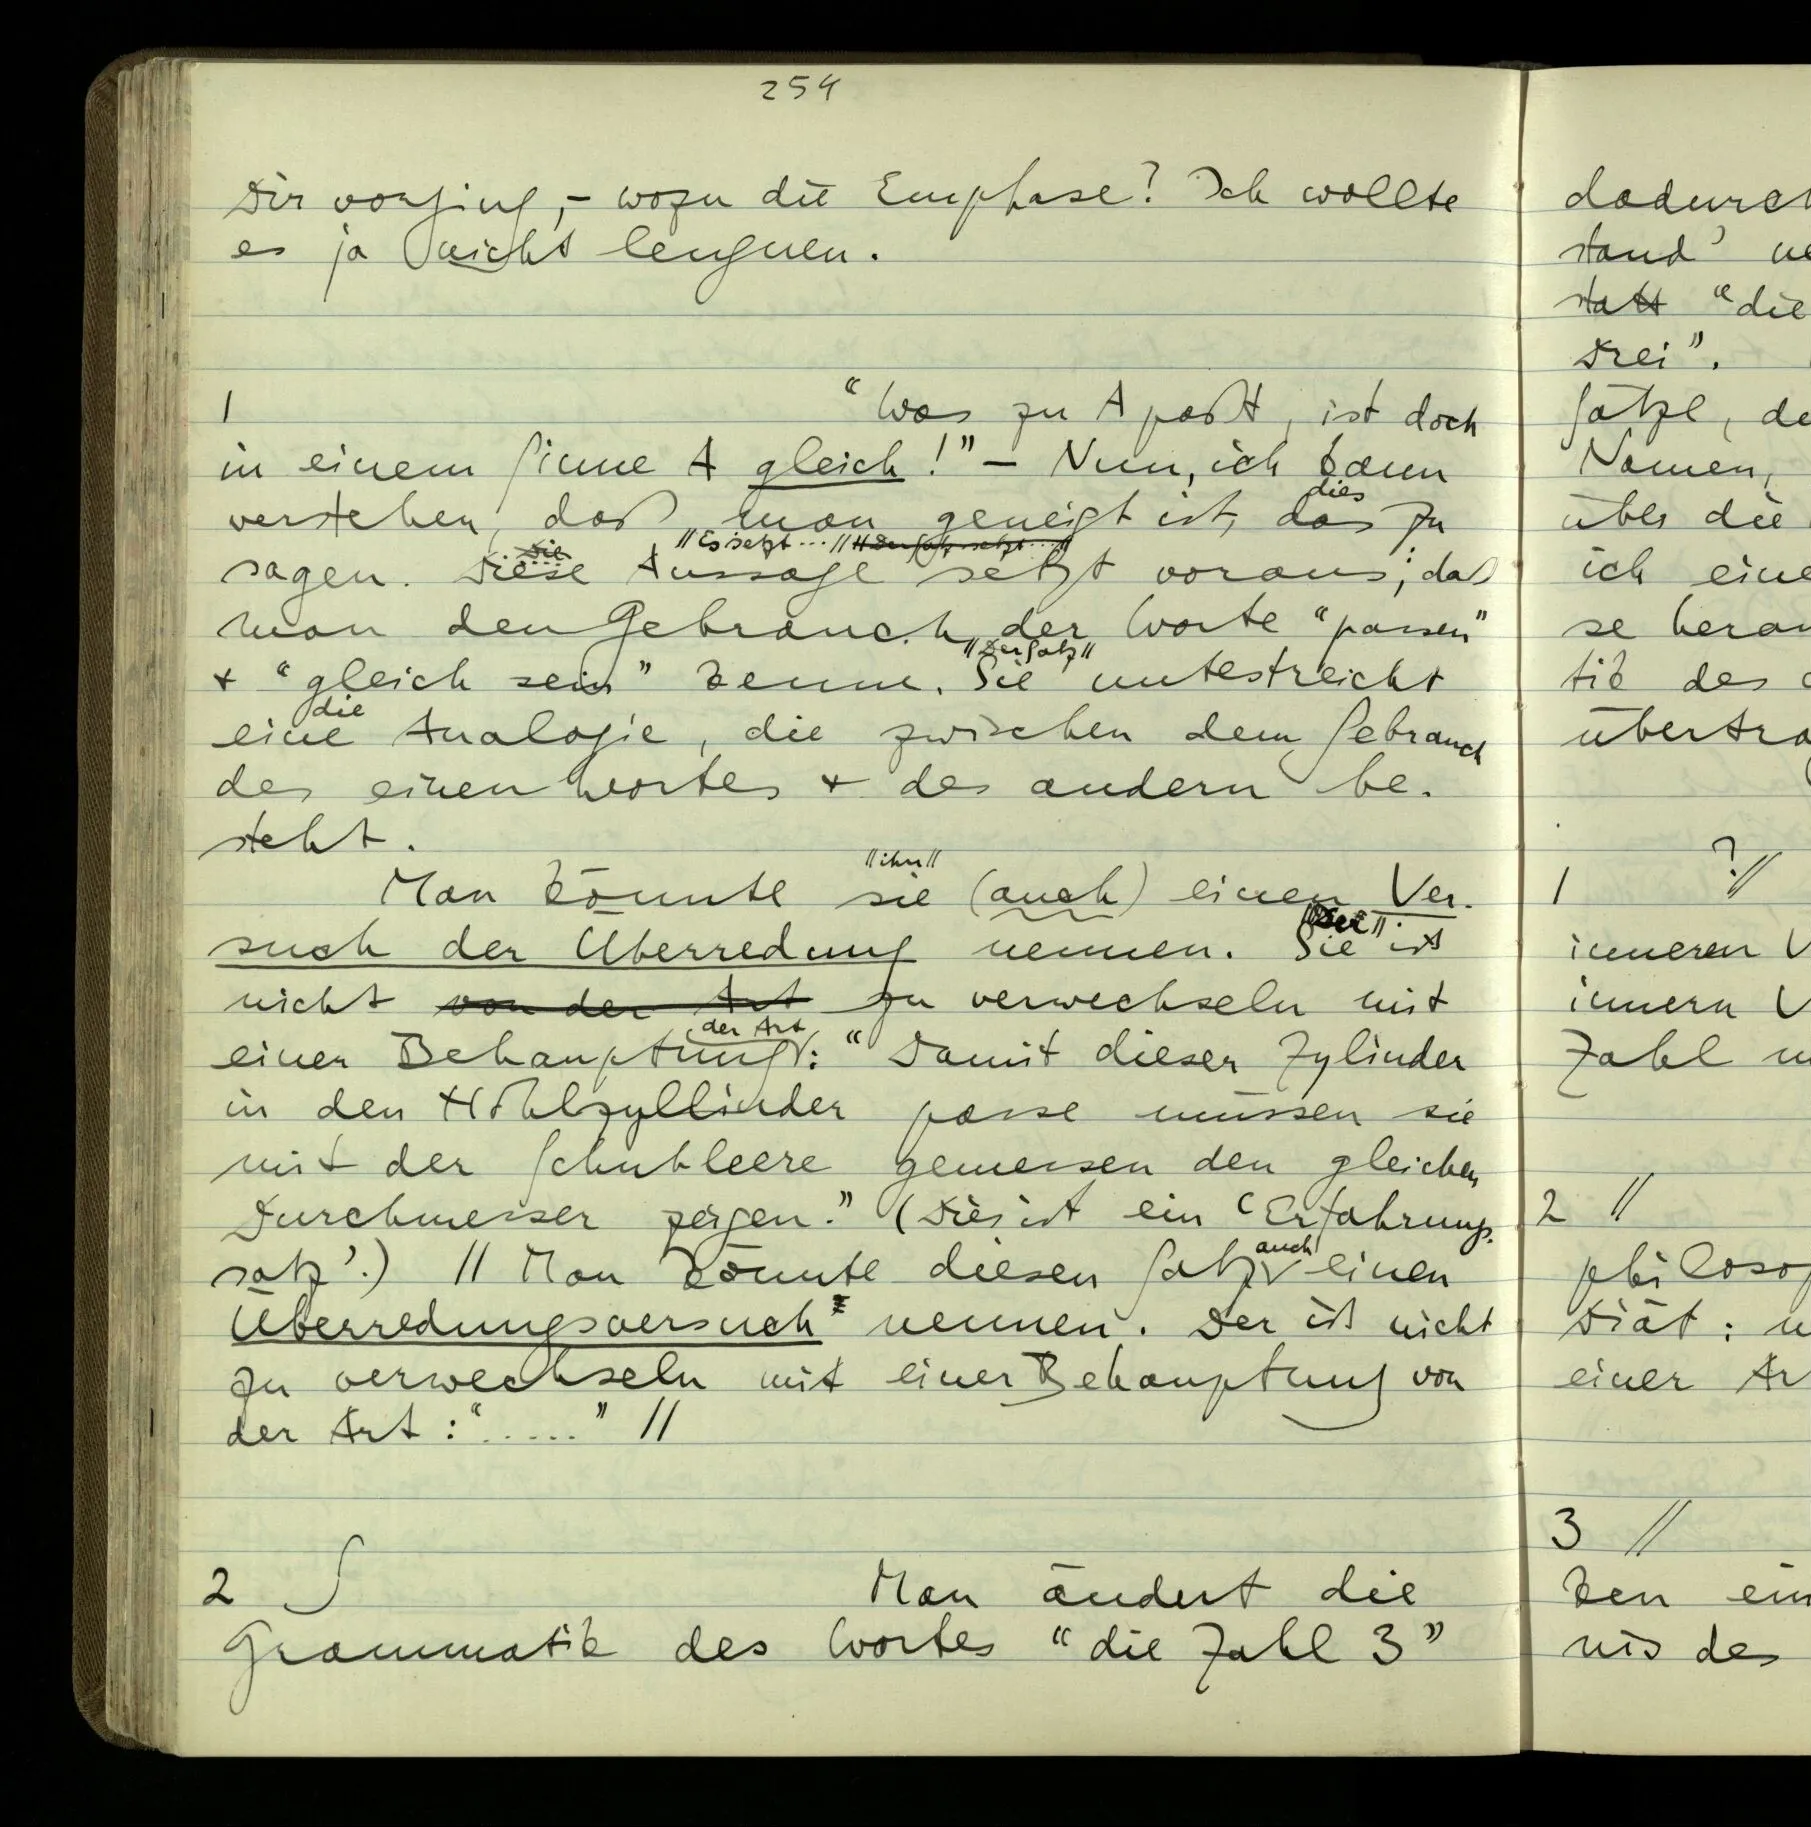 254
Dir vorging, – wozu die Emphase? Ich wollte
es ja nicht leugnen.
1
"Was zu A paßt, ist doch
in einem Sinne A gleich!" – Nun, ich kann
verstehen, daß man geneigt ist, das zu
dies
sagen. Diese Aussage setzt voraus, daß
die
//Es setzt ... // //Der Satz setzt ... //
man den Gebrauch der Worte "passen"
+ "gleich sein" kenne. Sie unterstreicht
//Der Satz//
eine Analogie, die zwischen dem Gebrauch
die
des einen Wortes + des andern be-
steht.
Man könnte sie (auch) einen Ver-
//ihn//
such der Überredung nennen. Sie ist
//Der//
nicht von der Art zu verwechseln mit
einer Behauptung: "Damit dieser Zylinder
der Art
in den Hohlzyllinder passe müssen sie
mit der Schubleere gemessen den gleichen
Durchmesser zeigen." (Dies ist ein 'Erfahrungs-
satz'.) // Man könnte diesen Satz einen
auch
Überredungsversuch nennen. Der ist nicht
zu verwechseln mit einer Behauptung von
der Art: "....." //
2 ∫
Man ändert die
Grammatik des Wortes "die Zahl 3"
dadurch
stand'
statt "die
Drei".
Sätze, de
Namen,
über die
ich eine
se heran
tik des
übertra
1 ?//
inneren V
innern V
Zahl
2 //
philosop
Diät:
einer Ar
3 //
ken ein
nis des